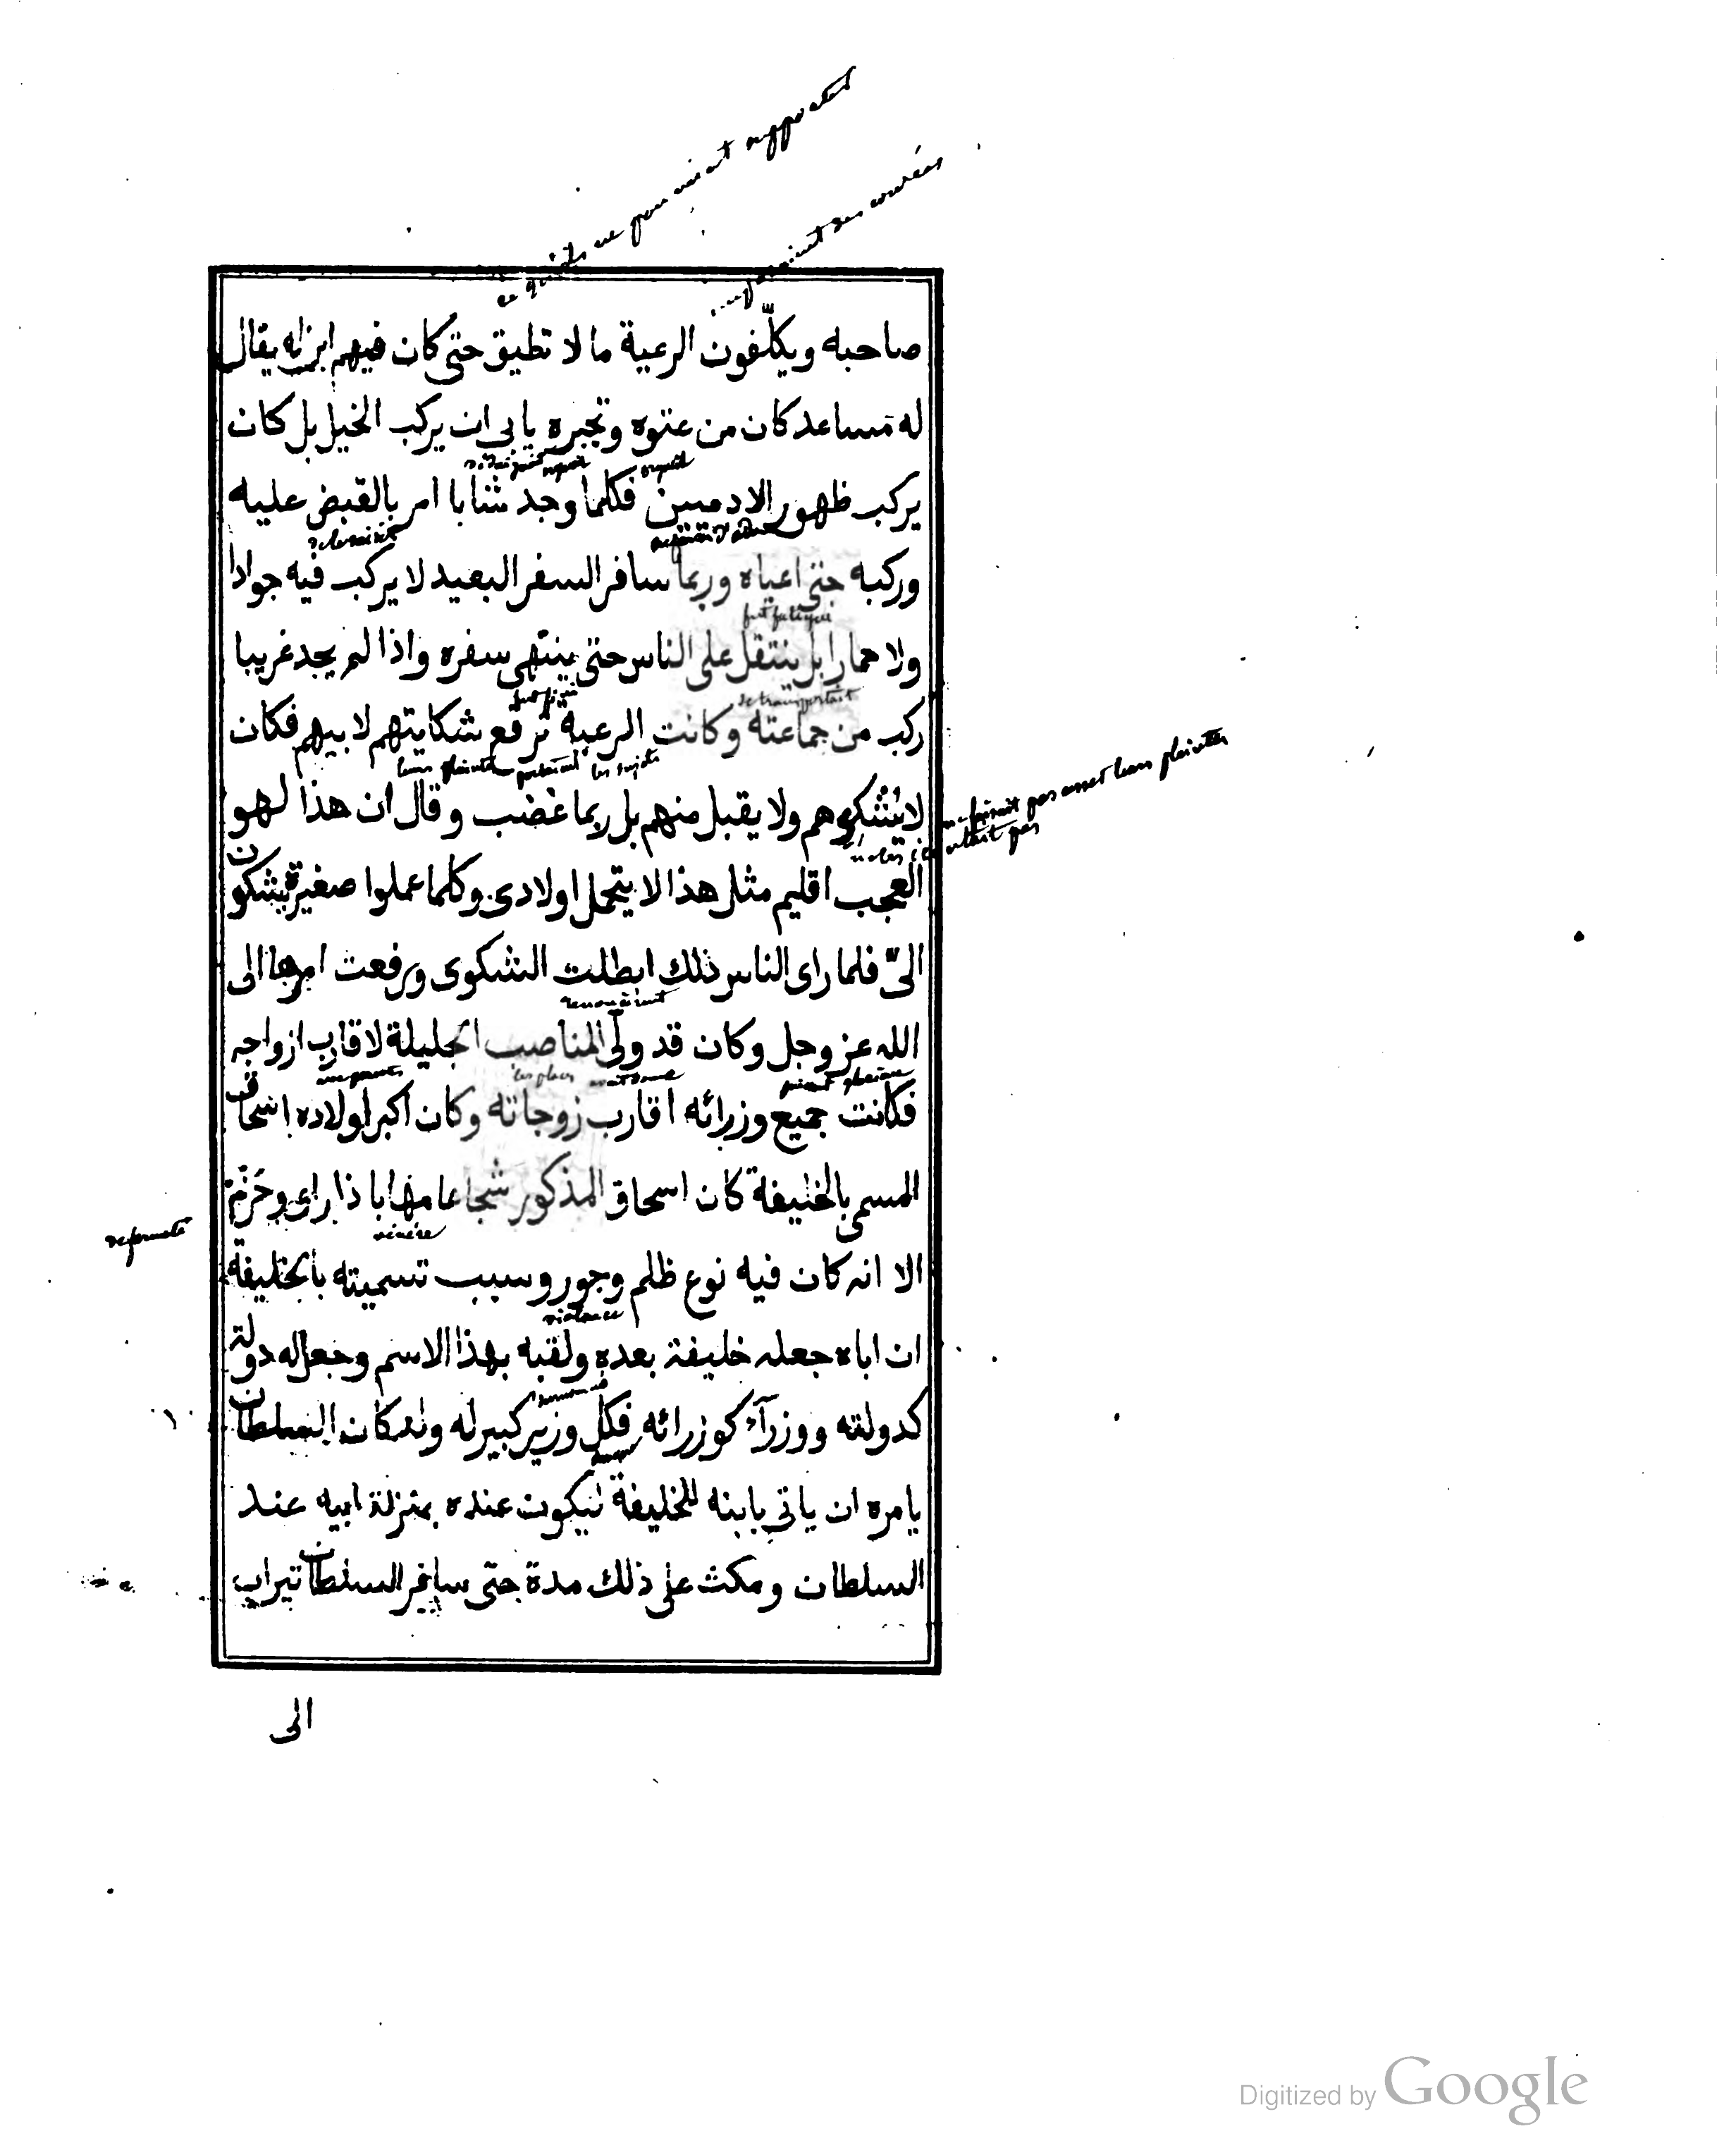 صاحبه ويكلّفون الرعية ما لا تطيق حتى كان فيهم ابن له يقال
له مساعد كان من عتوه وتجبره يابى ان يركب الخيل بل كان
يركب ظهور الادميين فكلما وجد شابا امر بالقبض عليه
وركبه حتى اعياه وربما سافر السفر البعيد لا يركب فيه جوادا
fut fatigué
ولا حمارا بل ينتقل على الناس حتى ينتهى سفره واذا لم يجد غريبا
se transportait
ركب من جماعته وكانت الرعية ترفع شكايتهم لابيهم فكان
leurs plaintes portaient les sujets
لا يُشْكوهم ولا يقبل منهم بل ربما غضب وقال ان هذا لهو
العجب اقليم مثل هذا لا يتحمل اولادى وكلما عملوا صغيرة يشكون
الىّ فلما راى الناس ذلك ابطلت الشكوى ورفعت امرها الى
renoncèrent
الله عز وجل وكان قد ولّى المناصب الجليلة لاقارب ازواجه
les places avait donné
فكانت جميع وزرائه اقارب زوجاته وكان اكبر اولاده اسحاق
المسمى بالخليفة كان اسحاق المذكور شجاعا مهابا ذا راى وحَزْم
de fermeté
الا انه كان فيه نوع ظلم وجور وسبب تسميته بالخليفة
violence
ان اباه جعله خليفة بعده ولقبه بهذا الاسم وجعل له دولة
كدولته ووزرآء كوزرائه فكل وزير كبير له ولد كان السلطان
يامره ان ياتى بابنه للخليفة ليكون عنده بمنزلة ابيه عند
السلطان ومكث على ذلك مدة حتى سافر السلطان تيراب
الى
Digitized by Google